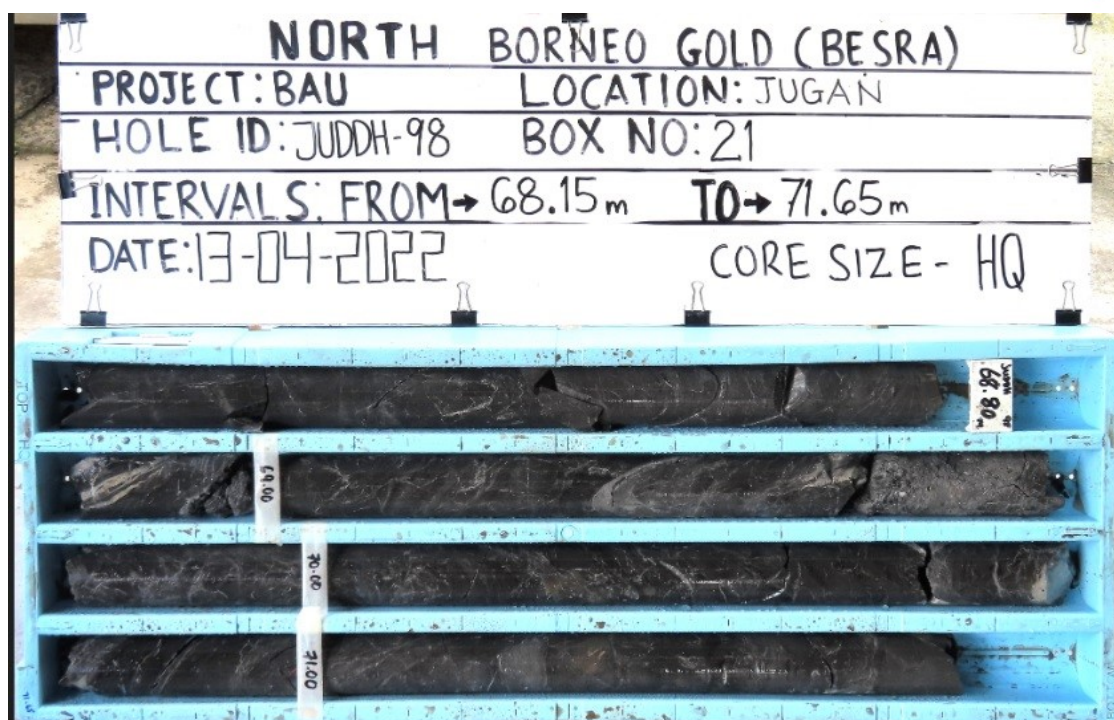 NORTH BORNEO GOLD (BESRA)
PROJECT: BAU LOCATION: JUGAN
HOLE ID: JUDDH-98 BOX NO: 21
INTERVALS: FROM→ 68.15m TO→ 71.65m
DATE: 13-04-2022 CORE SIZE - HQ
68.80 m
69.00
70.00
71.00